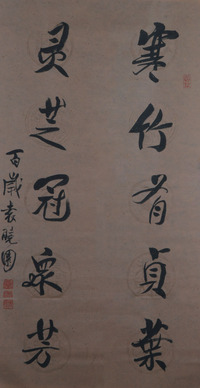 寒竹有貞葉
灵芝冠众芳
百歲袁曉園